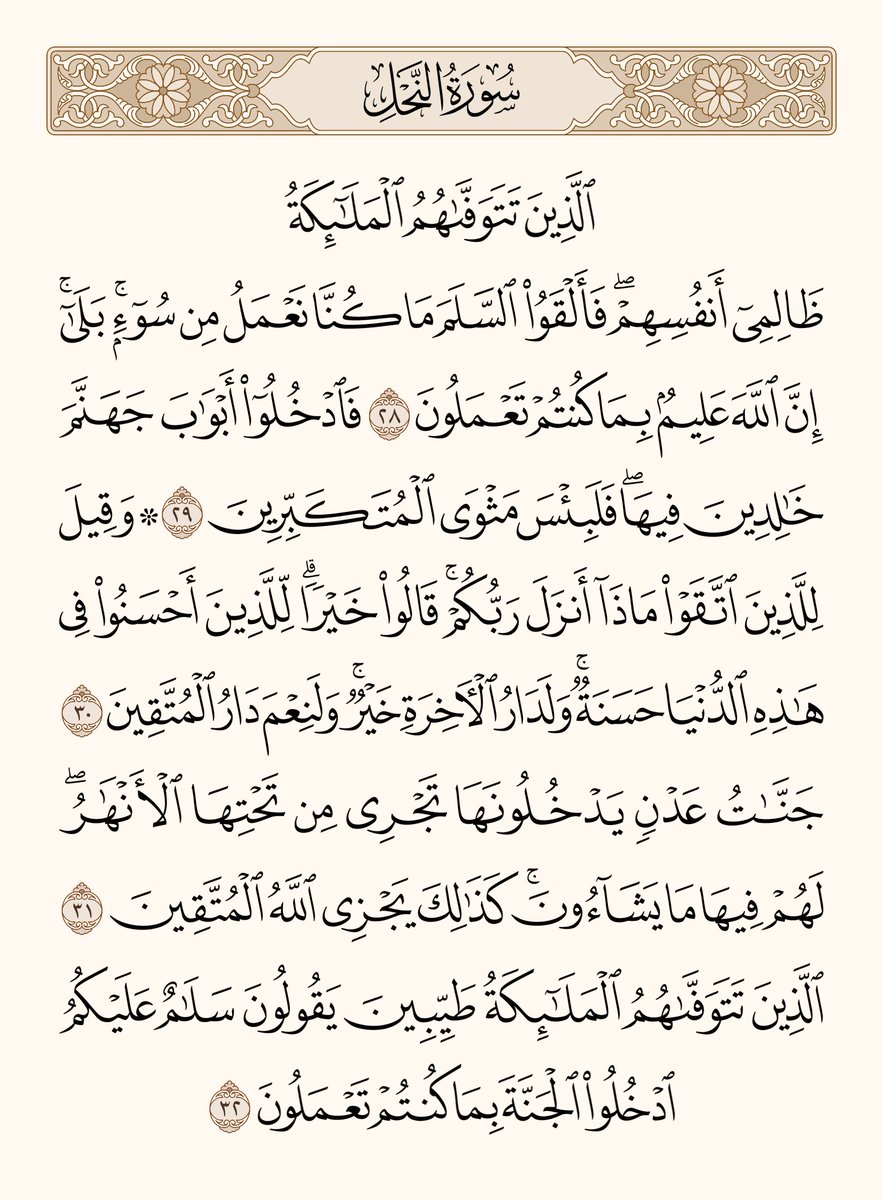 سُورَةُ النَّحۡلِ
ٱلَّذِينَ تَتَوَفَّىٰهُمُ ٱلۡمَلَٰٓئِكَةُ
ظَالِمِيٓ أَنفُسِهِمۡۖ فَأَلۡقَوُاْ ٱلسَّلَمَ مَا كُنَّا نَعۡمَلُ مِن سُوٓءِۭۚ بَلَىٰٓۚ
إِنَّ ٱللَّهَ عَلِيمُۢ بِمَا كُنتُمۡ تَعۡمَلُونَ ٢٨ فَٱدۡخُلُوٓاْ أَبۡوَٰبَ جَهَنَّمَ
خَٰلِدِينَ فِيهَاۖ فَلَبِئۡسَ مَثۡوَى ٱلۡمُتَكَبِّرِينَ ٢٩ * وَقِيلَ
لِلَّذِينَ ٱتَّقَوۡاْ مَاذَآ أَنزَلَ رَبُّكُمۡۚ قَالُواْ خَيۡرٗاۗ لِّلَّذِينَ أَحۡسَنُواْ فِي
هَٰذِهِ ٱلدُّنۡيَا حَسَنَةٞۚ وَلَدَارُ ٱلۡأٓخِرَةِ خَيۡرٞۚ وَلَنِعۡمَ دَارُ ٱلۡمُتَّقِينَ ٣٠
جَنَّٰتُ عَدۡنٖ يَدۡخُلُونَهَا تَجۡرِي مِن تَحۡتِهَا ٱلۡأَنۡهَٰرُۖ
لَهُمۡ فِيهَا مَا يَشَآءُونَۚ كَذَٰلِكَ يَجۡزِي ٱللَّهُ ٱلۡمُتَّقِينَ ٣١
ٱلَّذِينَ تَتَوَفَّىٰهُمُ ٱلۡمَلَٰٓئِكَةُ طَيِّبِينَ يَقُولُونَ سَلَٰمٌ عَلَيۡكُمُ
ٱدۡخُلُواْ ٱلۡجَنَّةَ بِمَا كُنتُمۡ تَعۡمَلُونَ ٣٢